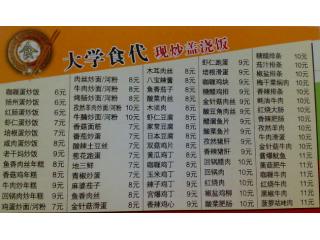 大学食代 现炒盖浇饭
咖喱蛋炒饭 6元
扬州蛋炒饭 6元
红肠蛋炒饭 6元
虾仁蛋炒饭 7元
培根蛋炒饭 7元
咸肉蛋炒饭 7元
老干妈炒饭 9元
鱼香肉丝年糕 8元
香菇鸡年糕 8元
牛肉炒年糕 9元
回锅肉炒年糕 9元
鸡蛋炒面/河粉 7元
肉丝炒面/河粉 8元
牛肉炒面/河粉 8元
烤肠炒面/河粉 8元
孜然羊肉炒面/河粉 10元
牛腩炒面/河粉 10元
香菇面筋 7元
番茄炒蛋 7元
酸辣土豆丝 7元
葱花跑蛋 7元
地三鲜 7元
青椒炒蛋 7元
麻婆茄子 8元
鱼香肉丝 8元
金针菇滑蛋 8元
木耳肉丝 8元
八宝辣酱 8元
鱼香茄子 8元
酸菜肉丝 8元
木须肉 8元
虾仁豆腐 8元
麻婆豆腐 8元
日本豆腐 8元
双菇鸡丁 8元
鱼香鸡丁 8元
咖喱鸡丁 8元
玉米鸡丁 9元
辣子鸡丁 9元
宫爆鸡丁 9元
香辣鸡心 9元
虾仁跑蛋 9元
培根滑蛋 9元
咖喱鸡块 9元
梅干菜肉 9元
香菇肉片 9元
金针菇肉丝 9元
酸豆角肉丝 9元
酸菜鱼片 9元
茄汁鱼片 9元
孜然猪肝 9元
香辣猪肝 9元
回锅腊肉 10元
农家小炒肉 10元
回锅肉 10元
椒盐鸡柳 10元
酸菜肥肠 10元
糖醋排条 10元
茄汁排条 10元
椒盐排条 10元
梅子排条 10元
香辣排条 10元
蚝油牛肉 10元
黑椒牛肉 10元
咖喱牛肉 10元
孜然羊肉 10元
香辣鱿鱼 11元
红烧牛腩 11元
黑椒牛肉 11元
菠萝咕咾肉 11元